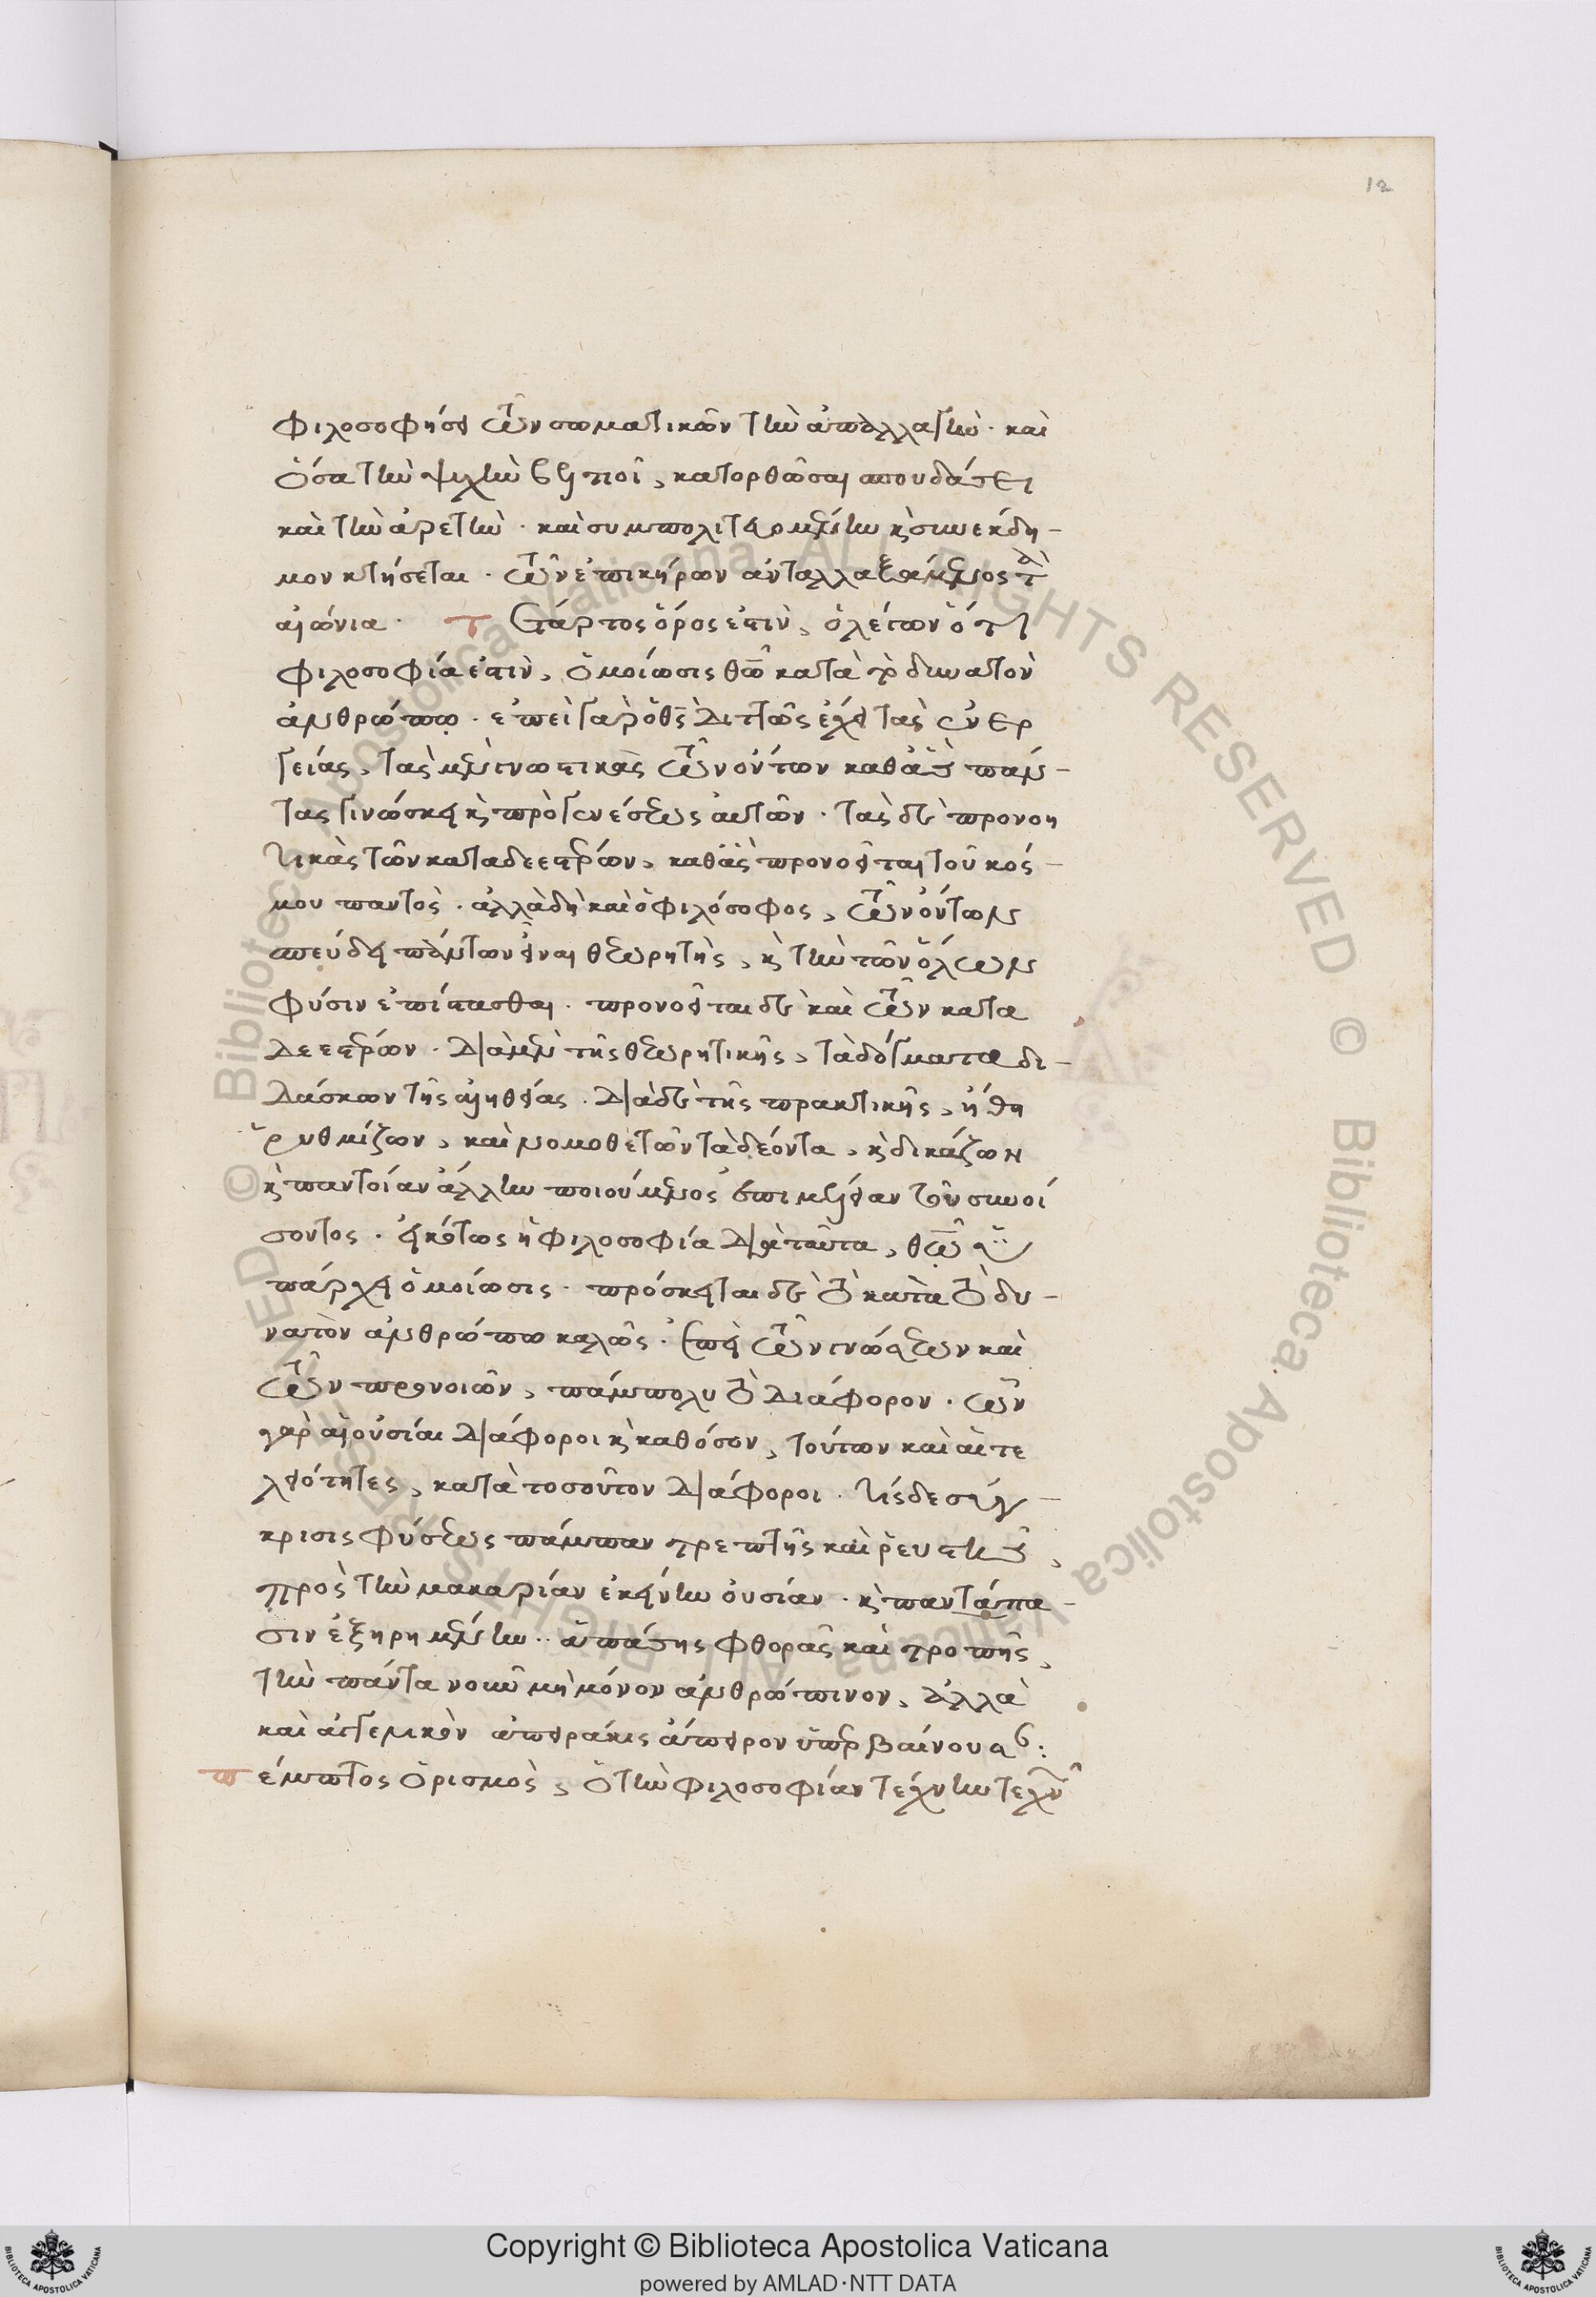 12
φιλοσοφήσει τῶν σωματικῶν τὴν ἀπαλλαγὴν· καὶ
ὅσα τὴν ψυχὴν βελτιοῖ, κατορθῶσαι σπουδάσει
καὶ τὴν ἀρετὴν· καὶ συμπολιτευομένην κ συνέκδη-
μον κτήσεται· τῶν ἐπικήρων ἀνταλλαξάμενος τὰ
αἰώνια· Τέταρτος ὅρος ἐστὶν, ὁ λέγων ὅτι
φιλοσοφία ἐστὶν, ὁμοίωσις θεῶ κατὰ τὸ δυνατὸν
ἀνθρώπω· ἐπεὶ γὰρ ὁ θεὸς διττὰς ἔχει τὰς ἐνερ
γείας, τὰς μὲν γνωστικὰς τῶν ὄντων καθ' ἃς πάν-
τας γινώσκει κ πρὸ γενέσεως αὐτῶν· τὰς δὲ προνοη
τικὰς τῶν καταδεεστέρων, καθ' ἃς προνοεῖται τοῦ κόσ-
μου παντὸς· ἀλλὰ δὴ καὶ ὁ φιλόσοφος, τῶν ὄντων
σπεύδει πάντων εἶναι θεωρητὴς, κ τὴν τῶν ὅλων
φύσιν ἐπίστασθαι· προνοεῖται δὲ καὶ τῶν κατα
δεεστέρων· διὰ μὲν τῆς θεωρητικῆς, τὰ δόγματα δι-
δάσκων τῆς ἀληθείας· διὰ δὲ τῆς πρακτικῆς, ἤθη
ῥυθμίζων, καὶ νομοθετῶν τὰ δέοντα, κ δικάζων
κ παντοίαν ἄλλην ποιούμενος ἐπιμέλειαν τοῦ συνοί
σοντος· εἰκότως ἡ φιλοσοφία διὰ ταῦτα, θεῶ ὑ
πάρχει ὁμοίωσις· πρόσκειται δὲ τὸ κατὰ τὸ δυ-
νατὸν ἀνθρώπω καλῶς· ἐπεὶ τῶν γνώσεων καὶ
τῶν προνοιῶν, πάμπολυ τὸ διάφορον· ὧν
γὰρ αἱ οὐσίαι διάφοροι κ καθ' ὅσον, τούτων καὶ αἱ τε
λειότητες, κατὰ τοσοῦτον διάφοροι· τίς δὲ σύγ-
κρισις φύσεως πάμπαν τρεπτῆς καὶ ῥευστῆς,
πρὸς τὴν μακαρίαν ἐκείνην οὐσίαν· κ παντάπα-
σιν ἐξηρημένην· ἁπάσης φθορᾶς καὶ τροπῆς,
τὴν πάντα νοῦν μὴ μόνον ἀνθρώπινον, ἀλλὰ
καὶ ἀγγελικὸν ἀπειράκις ἄπειρον ὑπερβαίνουσαν:
Πέμπτος ὁρισμὸς, ὁ τὴν φιλοσοφίαν τέχνην τεχνῶν
Copyright © Biblioteca Apostolica Vaticana
powered by AMLAD·NTT DATA